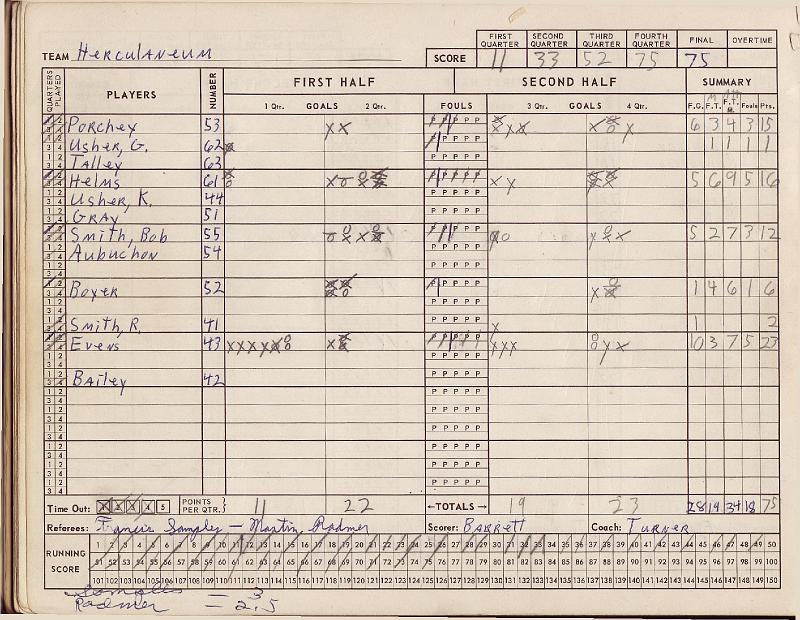 FIRST QUARTER SECOND QUARTER THIRD QUARTER FOURTH QUARTER FINAL OVERTIME
TEAM Herculaneum SCORE 11 33 52 75 75
QUARTERS PLAYED PLAYERS NUMBER FIRST HALF SECOND HALF SUMMARY
1 Qtr. GOALS 2 Qtr. FOULS 3 Qtr. GOALS 4 Qtr. F.G. F.T. F.T. Fouls Pts.
Porchey 53 6 3 4 3 15
Usher, G. 62 1 1 1 1
Talley 63
Helms 61 5 6 9 5 16
Usher, K. 44
Gray 51
Smith, Bob 55 5 2 7 3 12
Aubuchon 54
Boyer 52 1 4 6 1 6
Smith, R. 41 1 2
Evens 43 10 3 7 5 23
Bailey 42
Time Out: 1 2 3 4 5 POINTS PER QTR. 11 22 ←TOTALS→ 19 23 28 19 34 18 75
Referees: Samples — Martin Radmer Scorer: Barrett Coach: Turner
RUNNING SCORE
1 2 3 4 5 6 7 8 9 10 11 12 13 14 15 16 17 18 19 20 21 22 23 24 25 26 27 28 29 30 31 32 33 34 35 36 37 38 39 40 41 42 43 44 45 46 47 48 49 50
51 52 53 54 55 56 57 58 59 60 61 62 63 64 65 66 67 68 69 70 71 72 73 74 75 76 77 78 79 80 81 82 83 84 85 86 87 88 89 90 91 92 93 94 95 96 97 98 99 100
101 102 103 104 105 106 107 108 109 110 111 112 113 114 115 116 117 118 119 120 121 122 123 124 125 126 127 128 129 130 131 132 133 134 135 136 137 138 139 140 141 142 143 144 145 146 147 148 149 150
Samples = 3
Radmer = 2.5